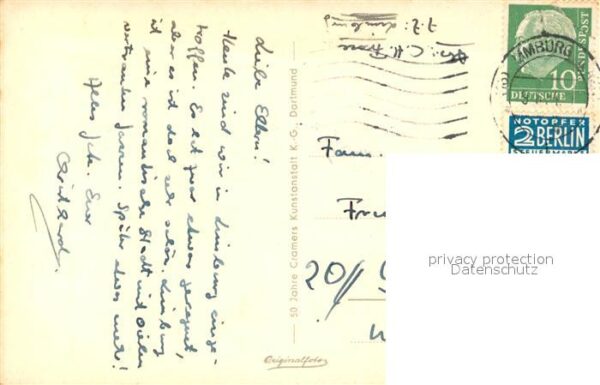 Liebe Eltern!
Heute sind wir in Limburg einge-
troffen. Es hat zwar etwas geregnet,
aber es ist doch sehr schön. Limburg
ist eine romantische Stadt mit vielen
Später etwas mehr!
Alles Euer
50 Jahre Cramers Kunstanstalt K.-G., Dortmund
Originalfoto
z.Z. Limburg
Fam.
20//
LIMBURG
10
DEUTSCHE
BUNDESPOST
NOTOPFER
2 BERLIN
STEUERMARKE
privacy protection
Datenschutz